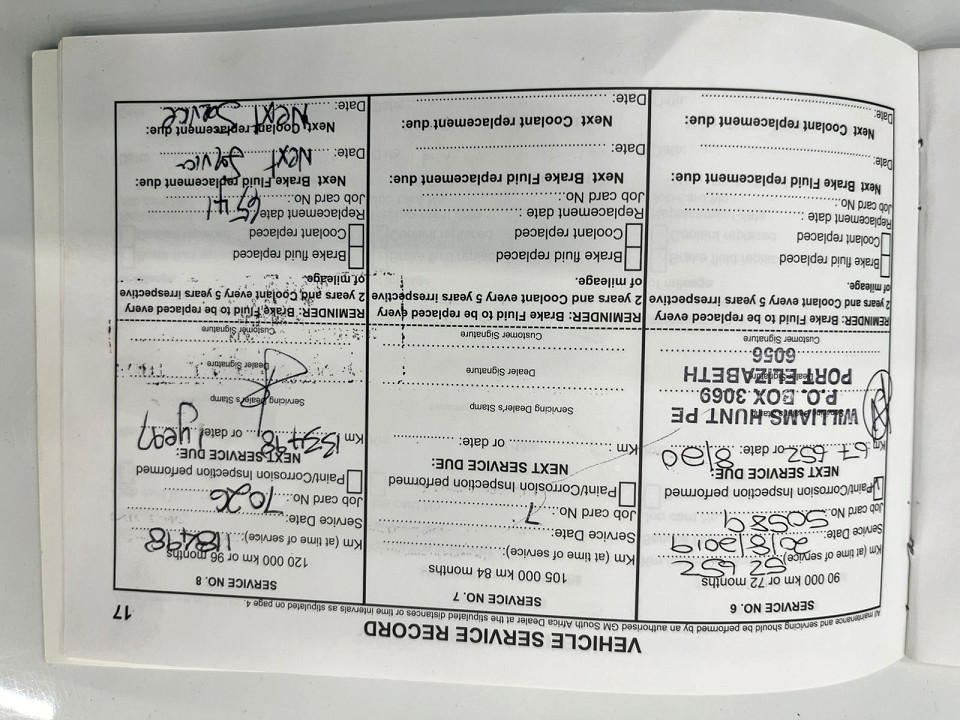 VEHICLE SERVICE RECORD
17
All maintenance and servicing should be performed by an authorised GM South Africa Dealer at the stipulated distances or time intervals as stipulated on page 4.
SERVICE NO. 6
90 000 km or 72 months
Km (at time of service): 52 652
Service Date: 20/8/2019
Job card No.: 50589
Paint/Corrosion Inspection performed
NEXT SERVICE DUE:
Km 67 652 or date: 8/20
Servicing Dealer's Stamp
WILLIAMS HUNT PE
P.O. BOX 3069
Dealer Signature
PORT ELIZABETH
6056
Customer Signature
REMINDER: Brake Fluid to be replaced every
2 years and Coolant every 5 years irrespective
of mileage.
Brake fluid replaced
Coolant replaced
Replacement date :
Job card No.:
Next Brake Fluid replacement due:
Date:
Next Coolant replacement due:
Date:
SERVICE NO. 7
105 000 km 84 months
Km (at time of service):
Service Date:
Job card No.:
Paint/Corrosion Inspection performed
NEXT SERVICE DUE:
Km : or date:
Servicing Dealer's Stamp
Dealer Signature
Customer Signature
REMINDER: Brake Fluid to be replaced every
2 years and Coolant every 5 years irrespective
of mileage.
Brake fluid replaced
Coolant replaced
Replacement date :
Job card No.:
Next Brake Fluid replacement due:
Date:
Next Coolant replacement due:
Date:
SERVICE NO. 8
120 000 km or 96 months
Km (at time of service): 118498
Service Date:
Job card No.: 7026
Paint/Corrosion Inspection performed
NEXT SERVICE DUE:
Km 133498 or date: 1 year
Servicing Dealer's Stamp
Dealer Signature
Customer Signature
REMINDER: Brake Fluid to be replaced every
2 years and Coolant every 5 years irrespective
of mileage.
Brake fluid replaced
Coolant replaced
Replacement date
Job card No.: 6541
Next Brake Fluid replacement due:
Date: Next Service
Next Coolant replacement due:
Date: Next Service